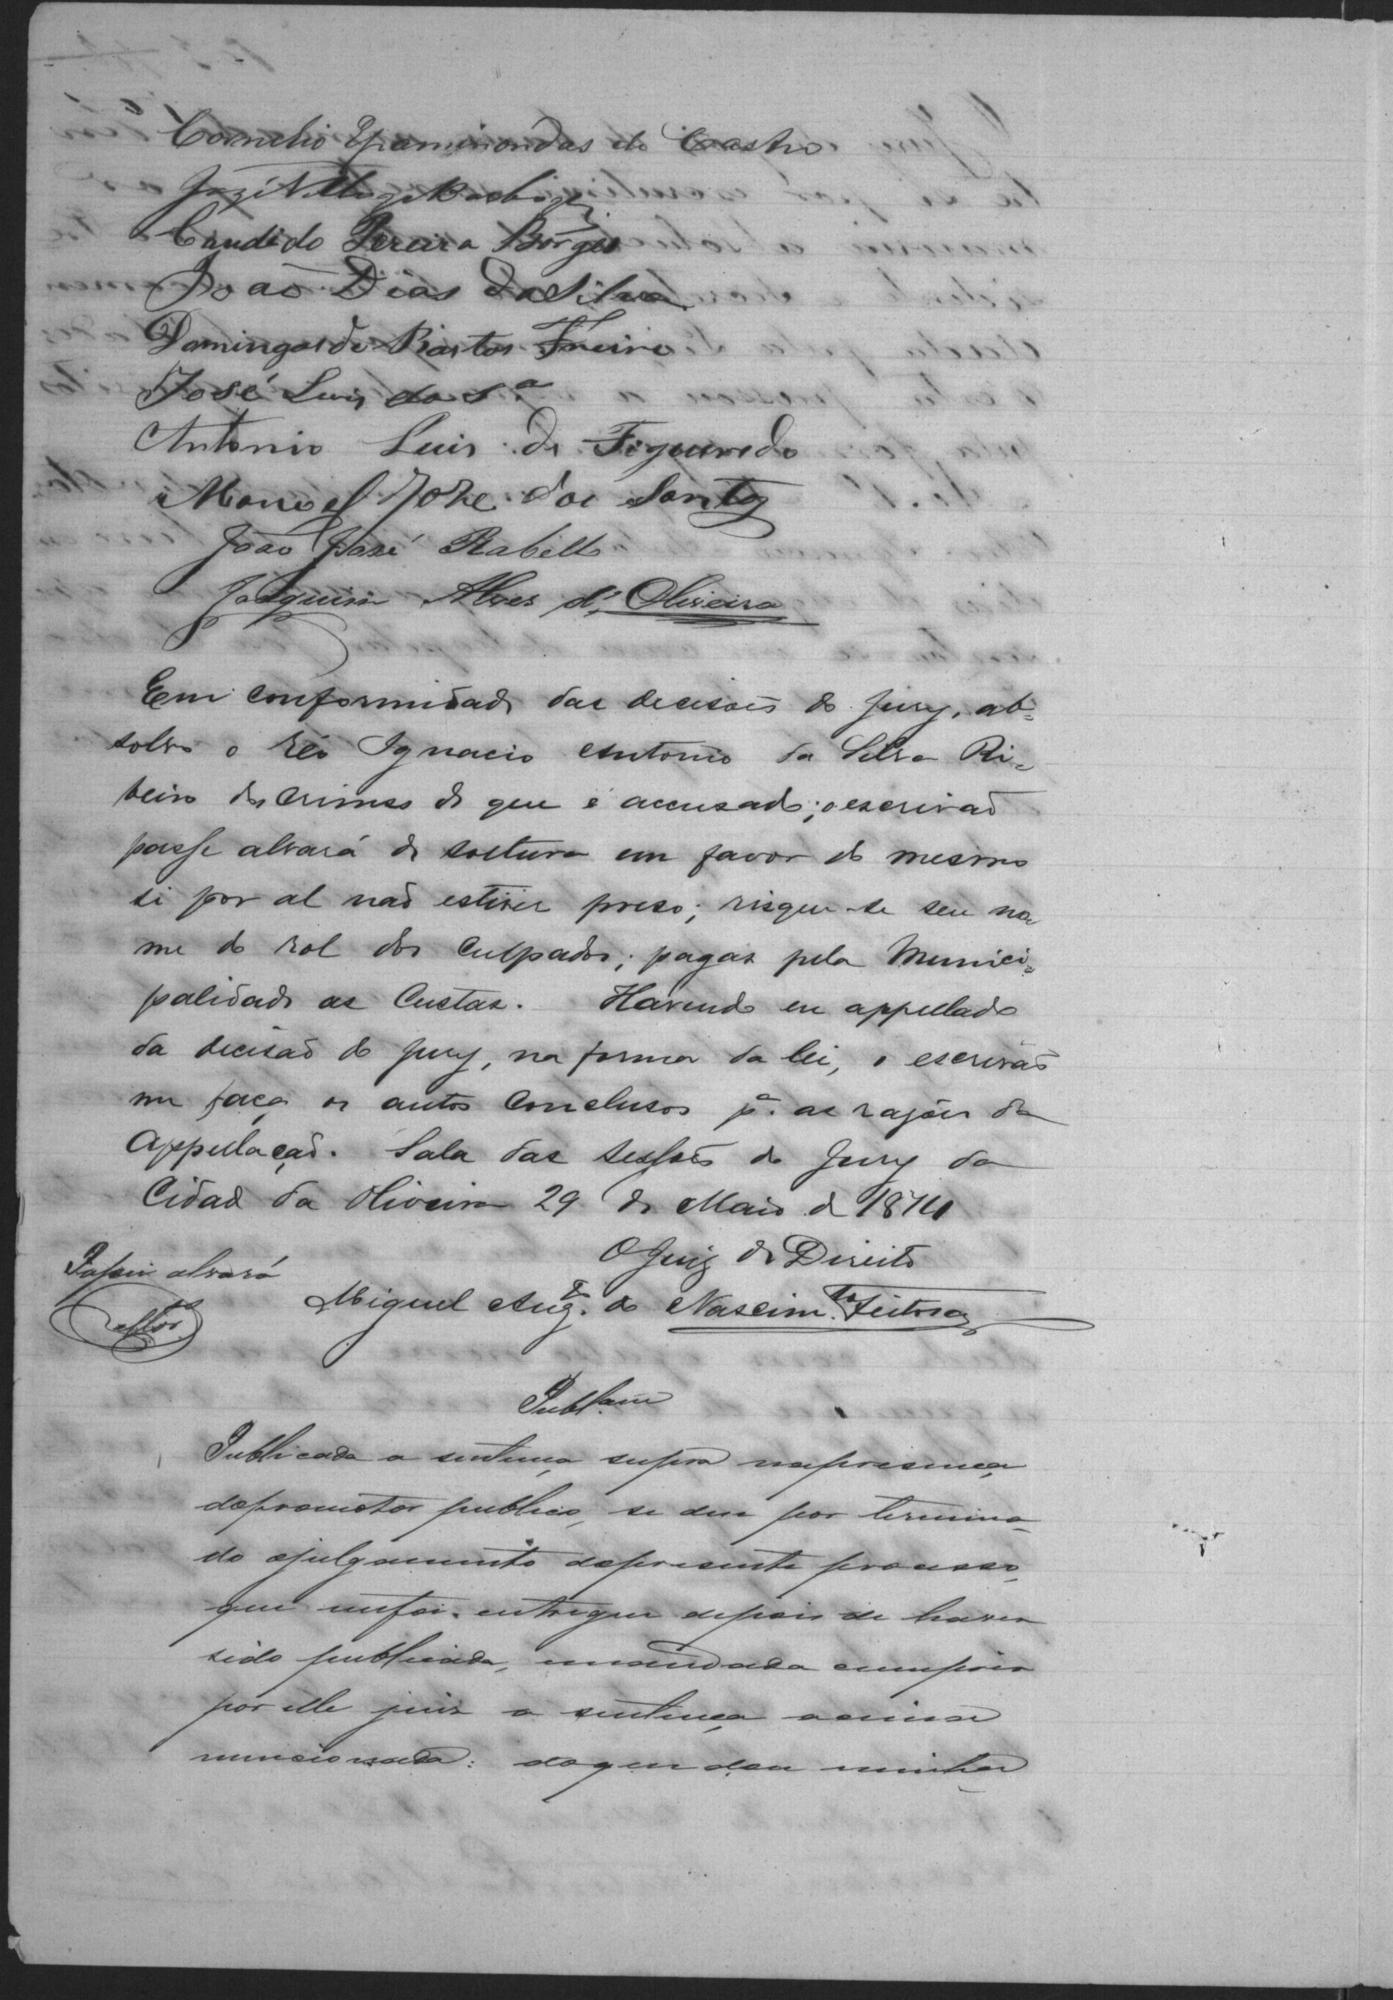 Cornelio Epaminondas de Castro
José
Candido Pereira Borges
João Dias da Silva
Domingos de Bastos Freire
José Luis da S.ª
Antonio Luis de Figueiredo
Manoel Joze dos Santos
João José Rabello
Joaquim Alves d'Oliveira
Em conformidade das decisões do Jury, ab-
solvo o réo Ignacio Antonio da Silva Ri-
beiro dos crimes de que é accusado; o escrivaõ
passe alvará de soltura em favor do mesmo
si por al naõ estiver preso; risque-se seu no-
me do rol dos culpados; pagas pela Munici-
palidade as Custas. Havendo eu appellado
da decisaõ do Jury, na forma da lei, o escrivaõ
me faça os autos conclusos p.ª as rasões da
appellaçaõ. Sala das sessões do Jury da
Cidade da Oliveira 29 de Maio de 1874
O Juiz de Direito
Miguel Aug.to do Nascim.to Feitosa
Passei alvará
Publ.am
Publicada a sentença supra na presença
do promotor publico, se deu por termina-
do o julgamento do presente processo,
que me foi entregue depois de haver
sido publicada, e mandada cumprir
por elle juis a sentença acima
mencionada: do que dou minha